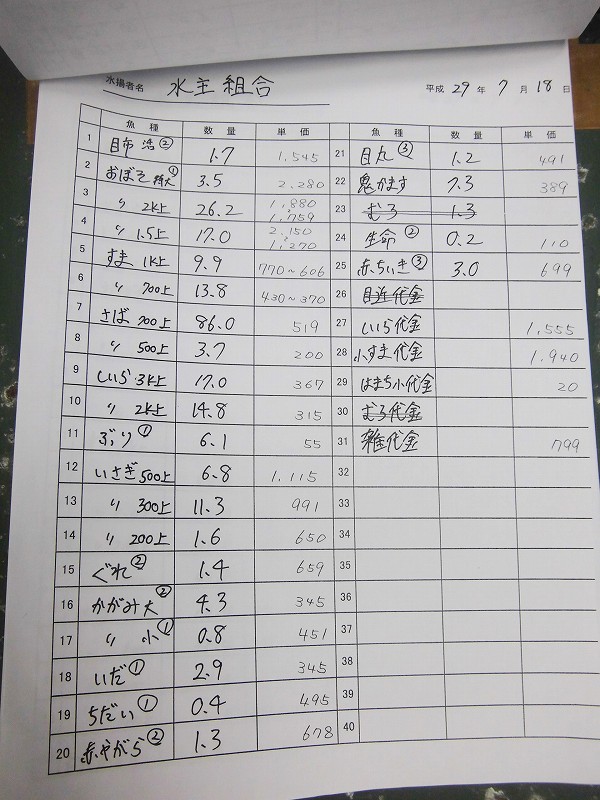 水揚者名 水主組合 平成 29 年 7 月 18 日
魚種 数量 単価 魚種 数量 単価
1 目布 活② 1.7 1,545
2 おぼそ 特大① 3.5 2,280
3 〃 2K上 26.2 1,880 1,759
4 〃 1.5上 17.0 2,150 1,270
5 すま 1K上 9.9 770~606
6 〃 700上 13.8 430~370
7 さば 700上 86.0 519
8 〃 500上 3.7 200
9 しいら・3K上 17.0 367
10 〃 2K上 14.8 315
11 ぶり① 6.1 55
12 いさぎ 500上 6.8 1,115
13 〃 300上 11.3 991
14 〃 200上 1.6 650
15 ぐれ② 1.4 659
16 かがみ 大② 4.3 345
17 〃 小① 0.8 451
18 いだ① 2.9 345
19 ちだい① 0.4 495
20 赤やがら② 1.3 678
21 目丸③ 1.2 491
22 鬼かます 7.3 389
23 むろ 1.3
24 生命② 0.2 110
25 赤ちいき③ 3.0 699
26 目近代金
27 しいら代金 1,555
28 小すま代金 1,940
29 はまち小代金 20
30 むろ代金
31 雑代金 799
32
33
34
35
36
37
38
39
40